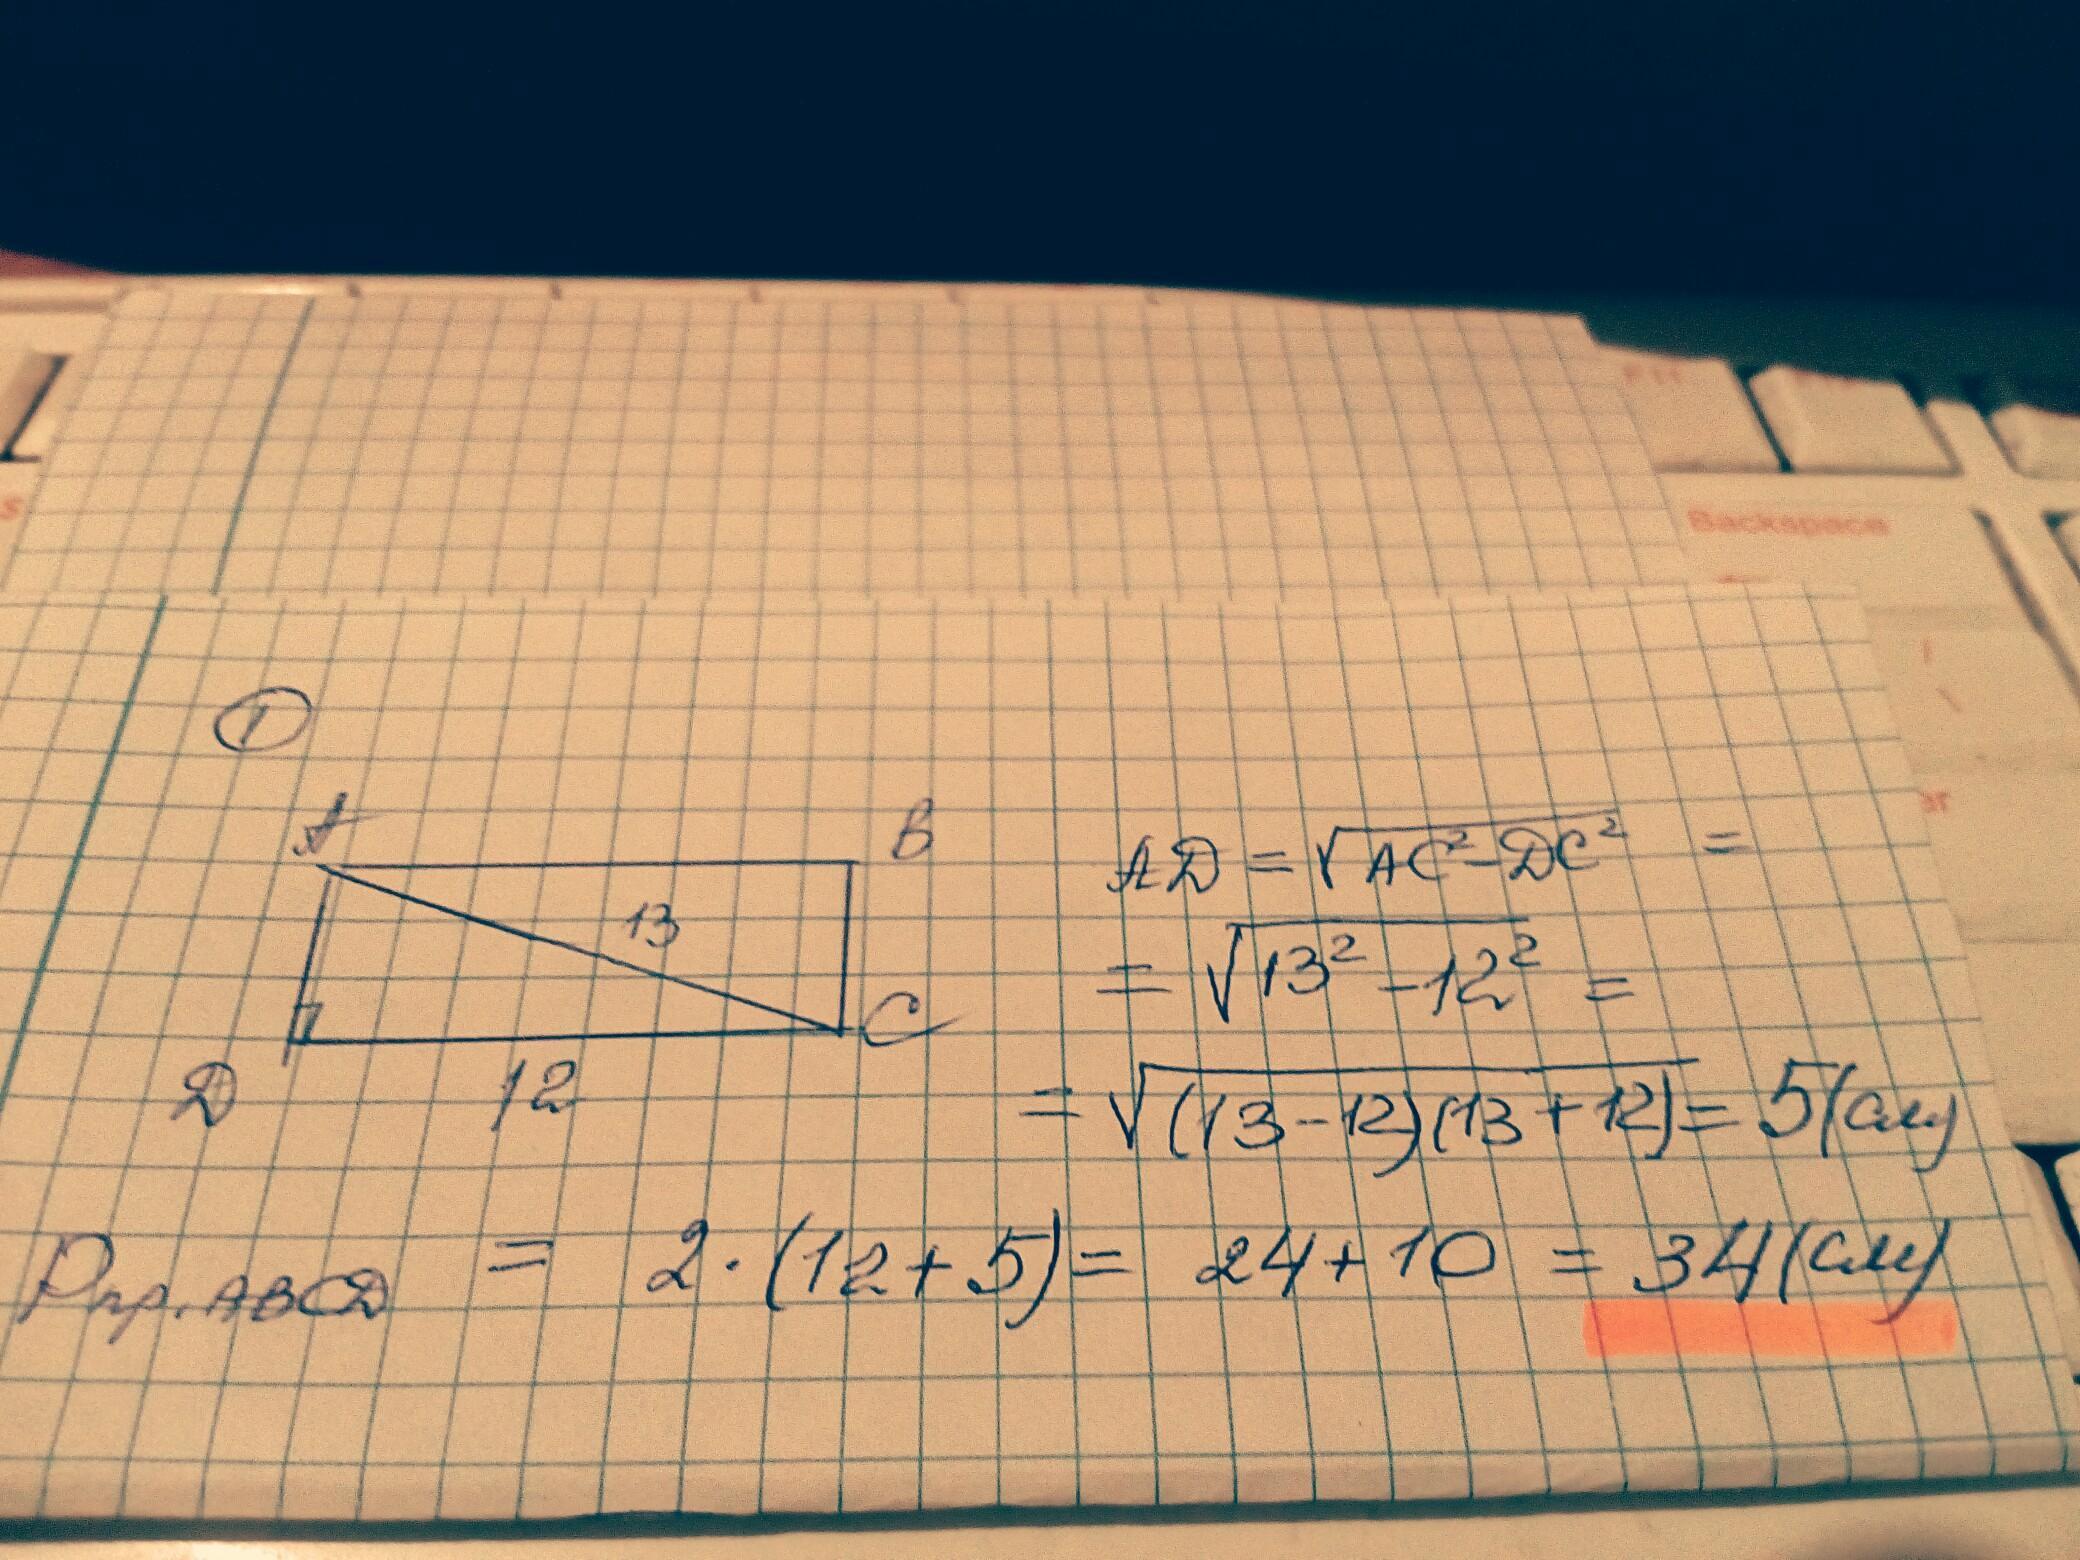 Backspace
①
A
B
13
C
D
12
AD = √AC² - DC² =
= √13² - 12² =
= √(13-12)(13+12) = 5 (см)
Pпр.ABCD = 2·(12+5) = 24+10 = 34 (см)